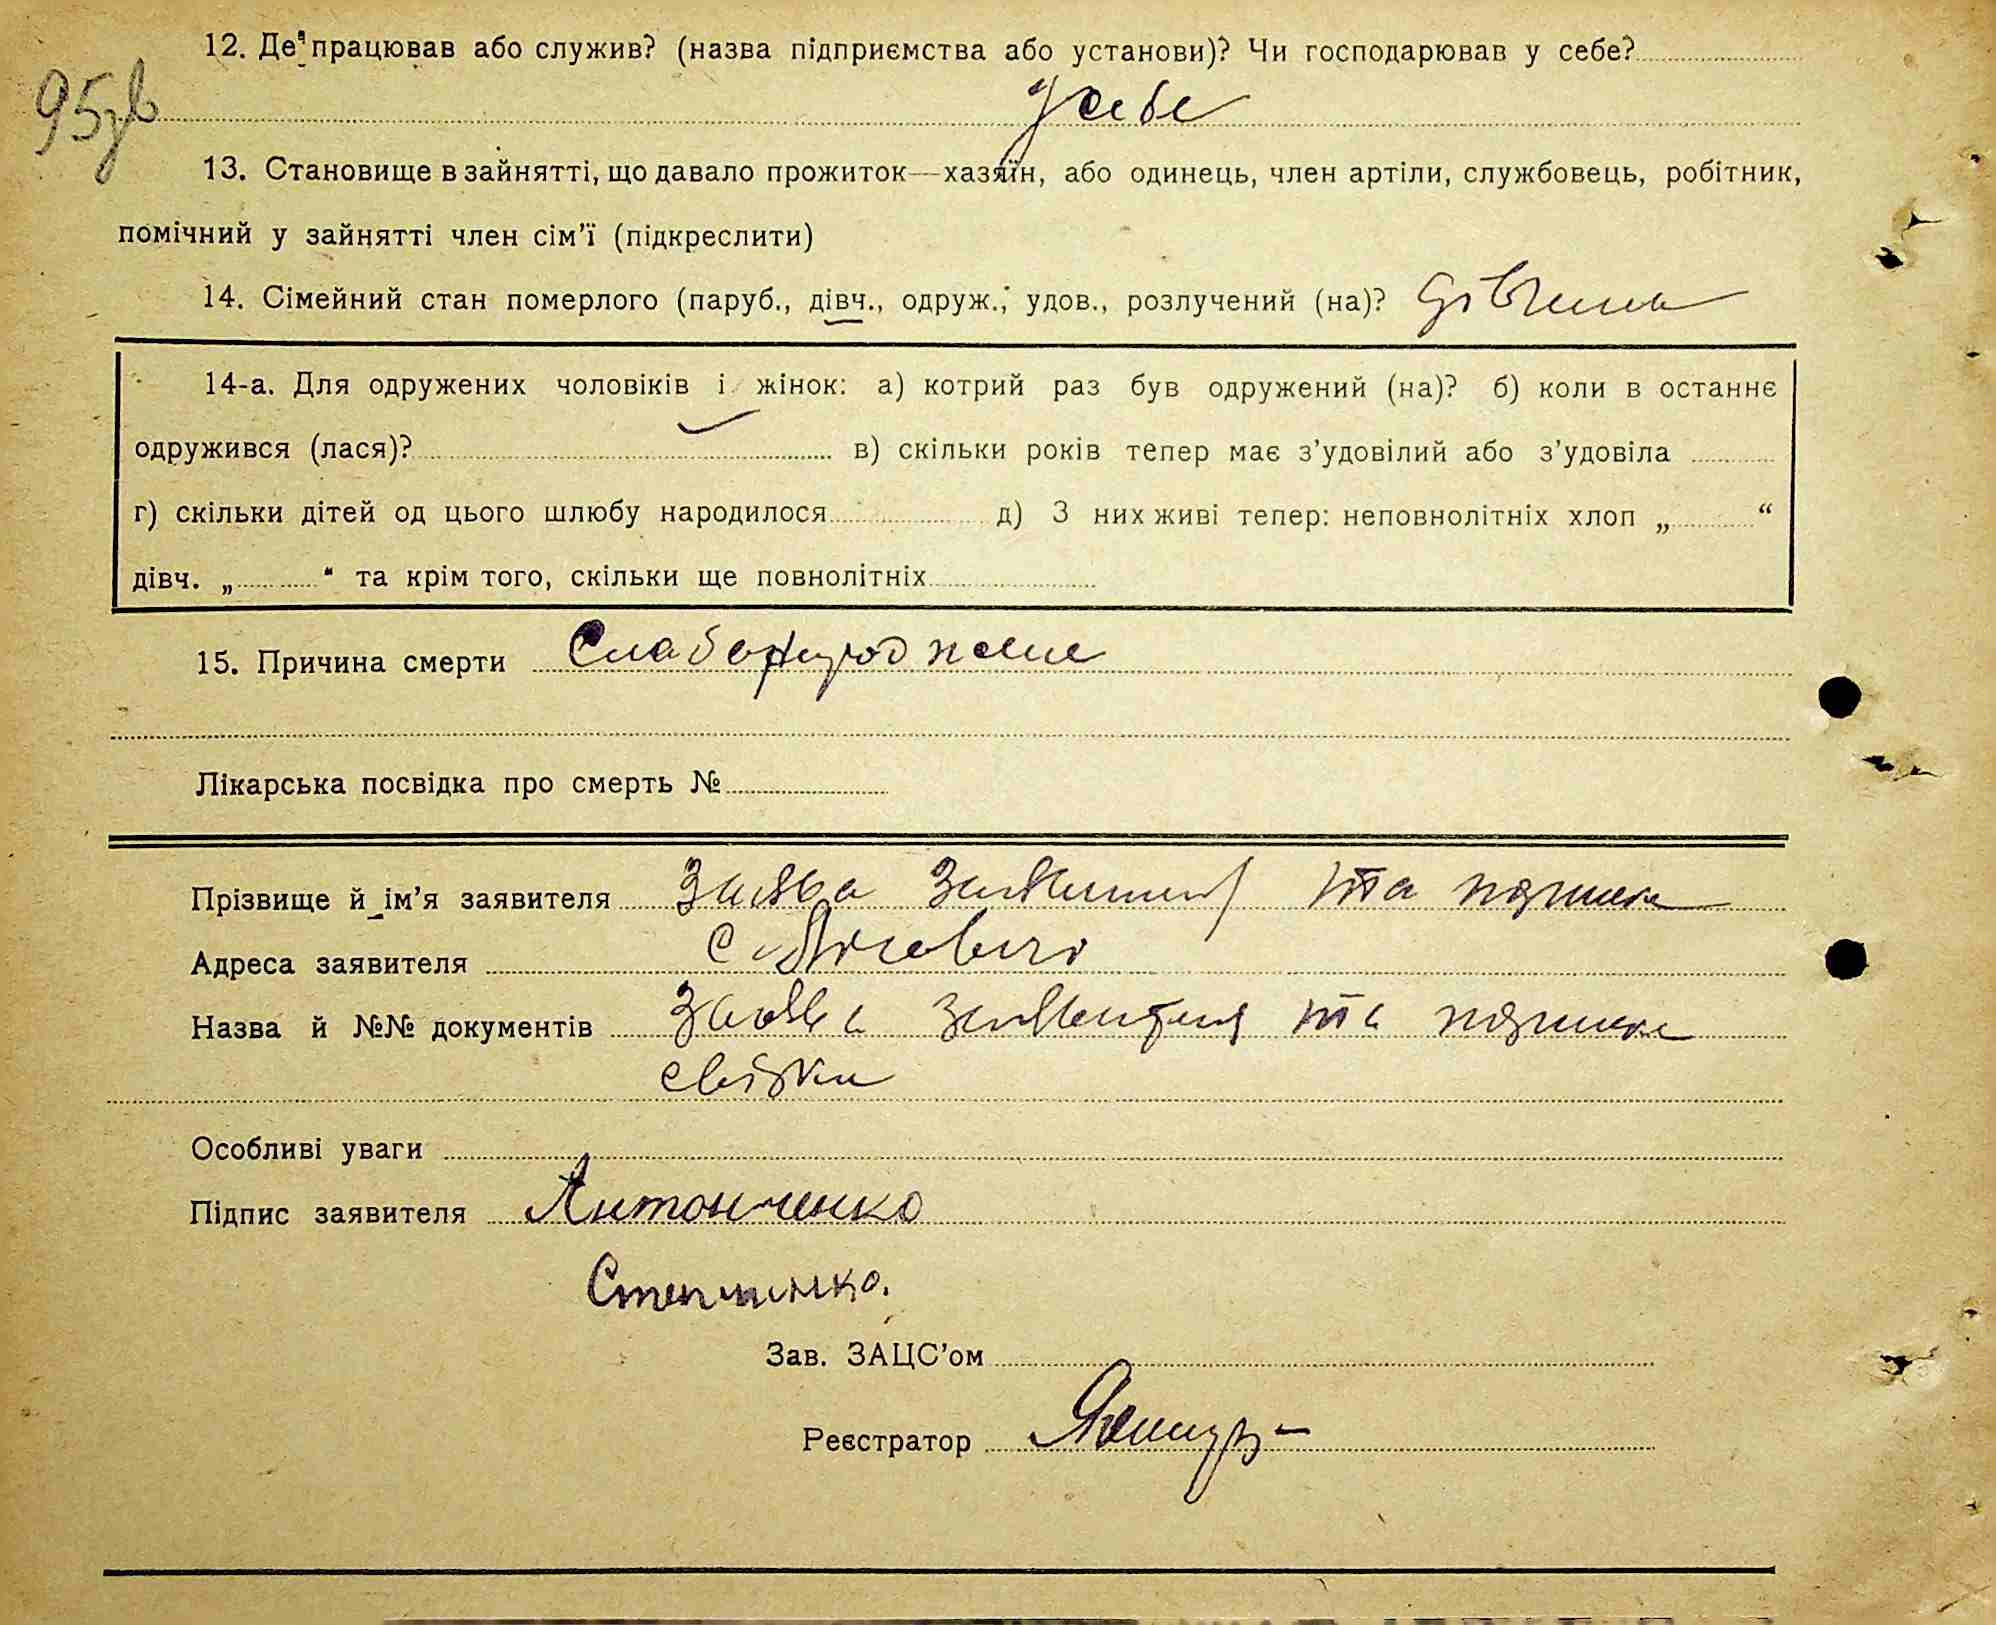 12. Де працював або служив? (назва підприємства або установи)? Чи господарював у себе?
95зв
У себе
13. Становище в зайнятті, що давало прожиток—хазяїн, або одинець, член артіли, службовець, робітник,
помічний у зайнятті член сім'ї (підкреслити)
14. Сімейний стан померлого (паруб., дівч., одруж., удов., розлучений (на)? дівчина
14-а. Для одружених чоловіків і жінок: а) котрий раз був одружений (на)? б) коли в останнє
одружився (лася)? в) скільки років тепер має з'удовілий або з'удовіла
г) скільки дітей од цього шлюбу народилося д) З них живі тепер: неповнолітніх хлоп „ “
дівч. „ “ та крім того, скільки ще повнолітніх
15. Причина смерти Слабонароджене
Лікарська посвідка про смерть №
Прізвище й ім'я заявителя Заява заявителя та підписи
Адреса заявителя с.
Назва й №№ документів Заява заявителя та підписи
свідки
Особливі уваги
Підпис заявителя Антонченко
Зав. ЗАЦС'ом
Реєстратор